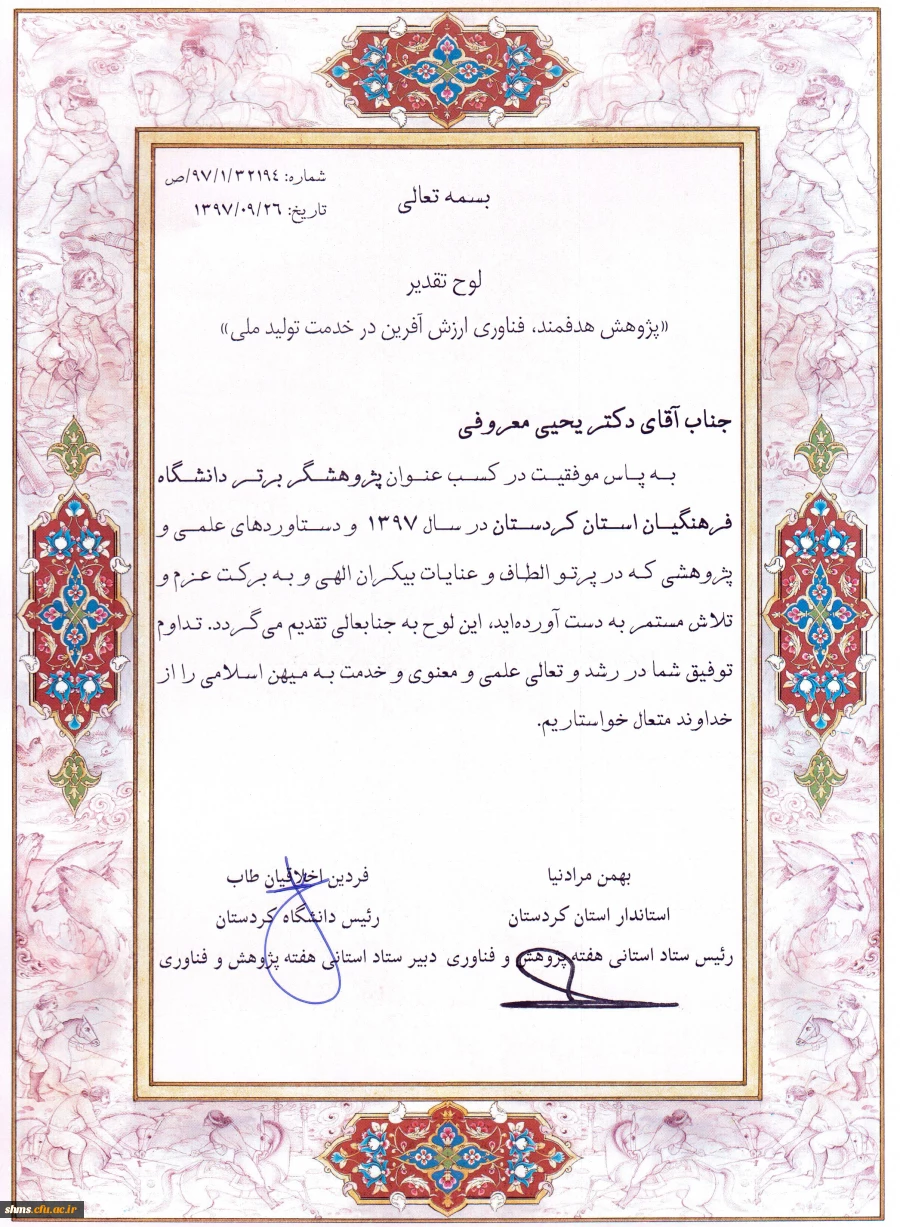 شماره: ۹۷/۱/۳۲۱۹٤/ص
تاریخ: ۱۳۹۷/۰۹/۲٦
بسمه تعالی
لوح تقدیر
«پژوهش هدفمند، فناوری ارزش آفرین در خدمت تولید ملی»
جناب آقای دکتر یحیی معروفی
به پاس موفقیت در کسب عنوان پژوهشگر برتر دانشگاه
فرهنگیان استان کردستان در سال ۱۳۹۷ و دستاوردهای علمی و
پژوهشی که در پرتو الطاف و عنایات بیکران الهی و به برکت عزم و
تلاش مستمر به دست آورده‌اید، این لوح به جنابعالی تقدیم می‌گردد. تداوم
توفیق شما در رشد و تعالی علمی و معنوی و خدمت به میهن اسلامی را از
خداوند متعال خواستاریم.
بهمن مرادنیا
استاندار استان کردستان
رئیس ستاد استانی هفته پژوهش و فناوری
فردین اخلاقیان طاب
رئیس دانشگاه کردستان
دبیر ستاد استانی هفته پژوهش و فناوری
shms.cfu.ac.ir